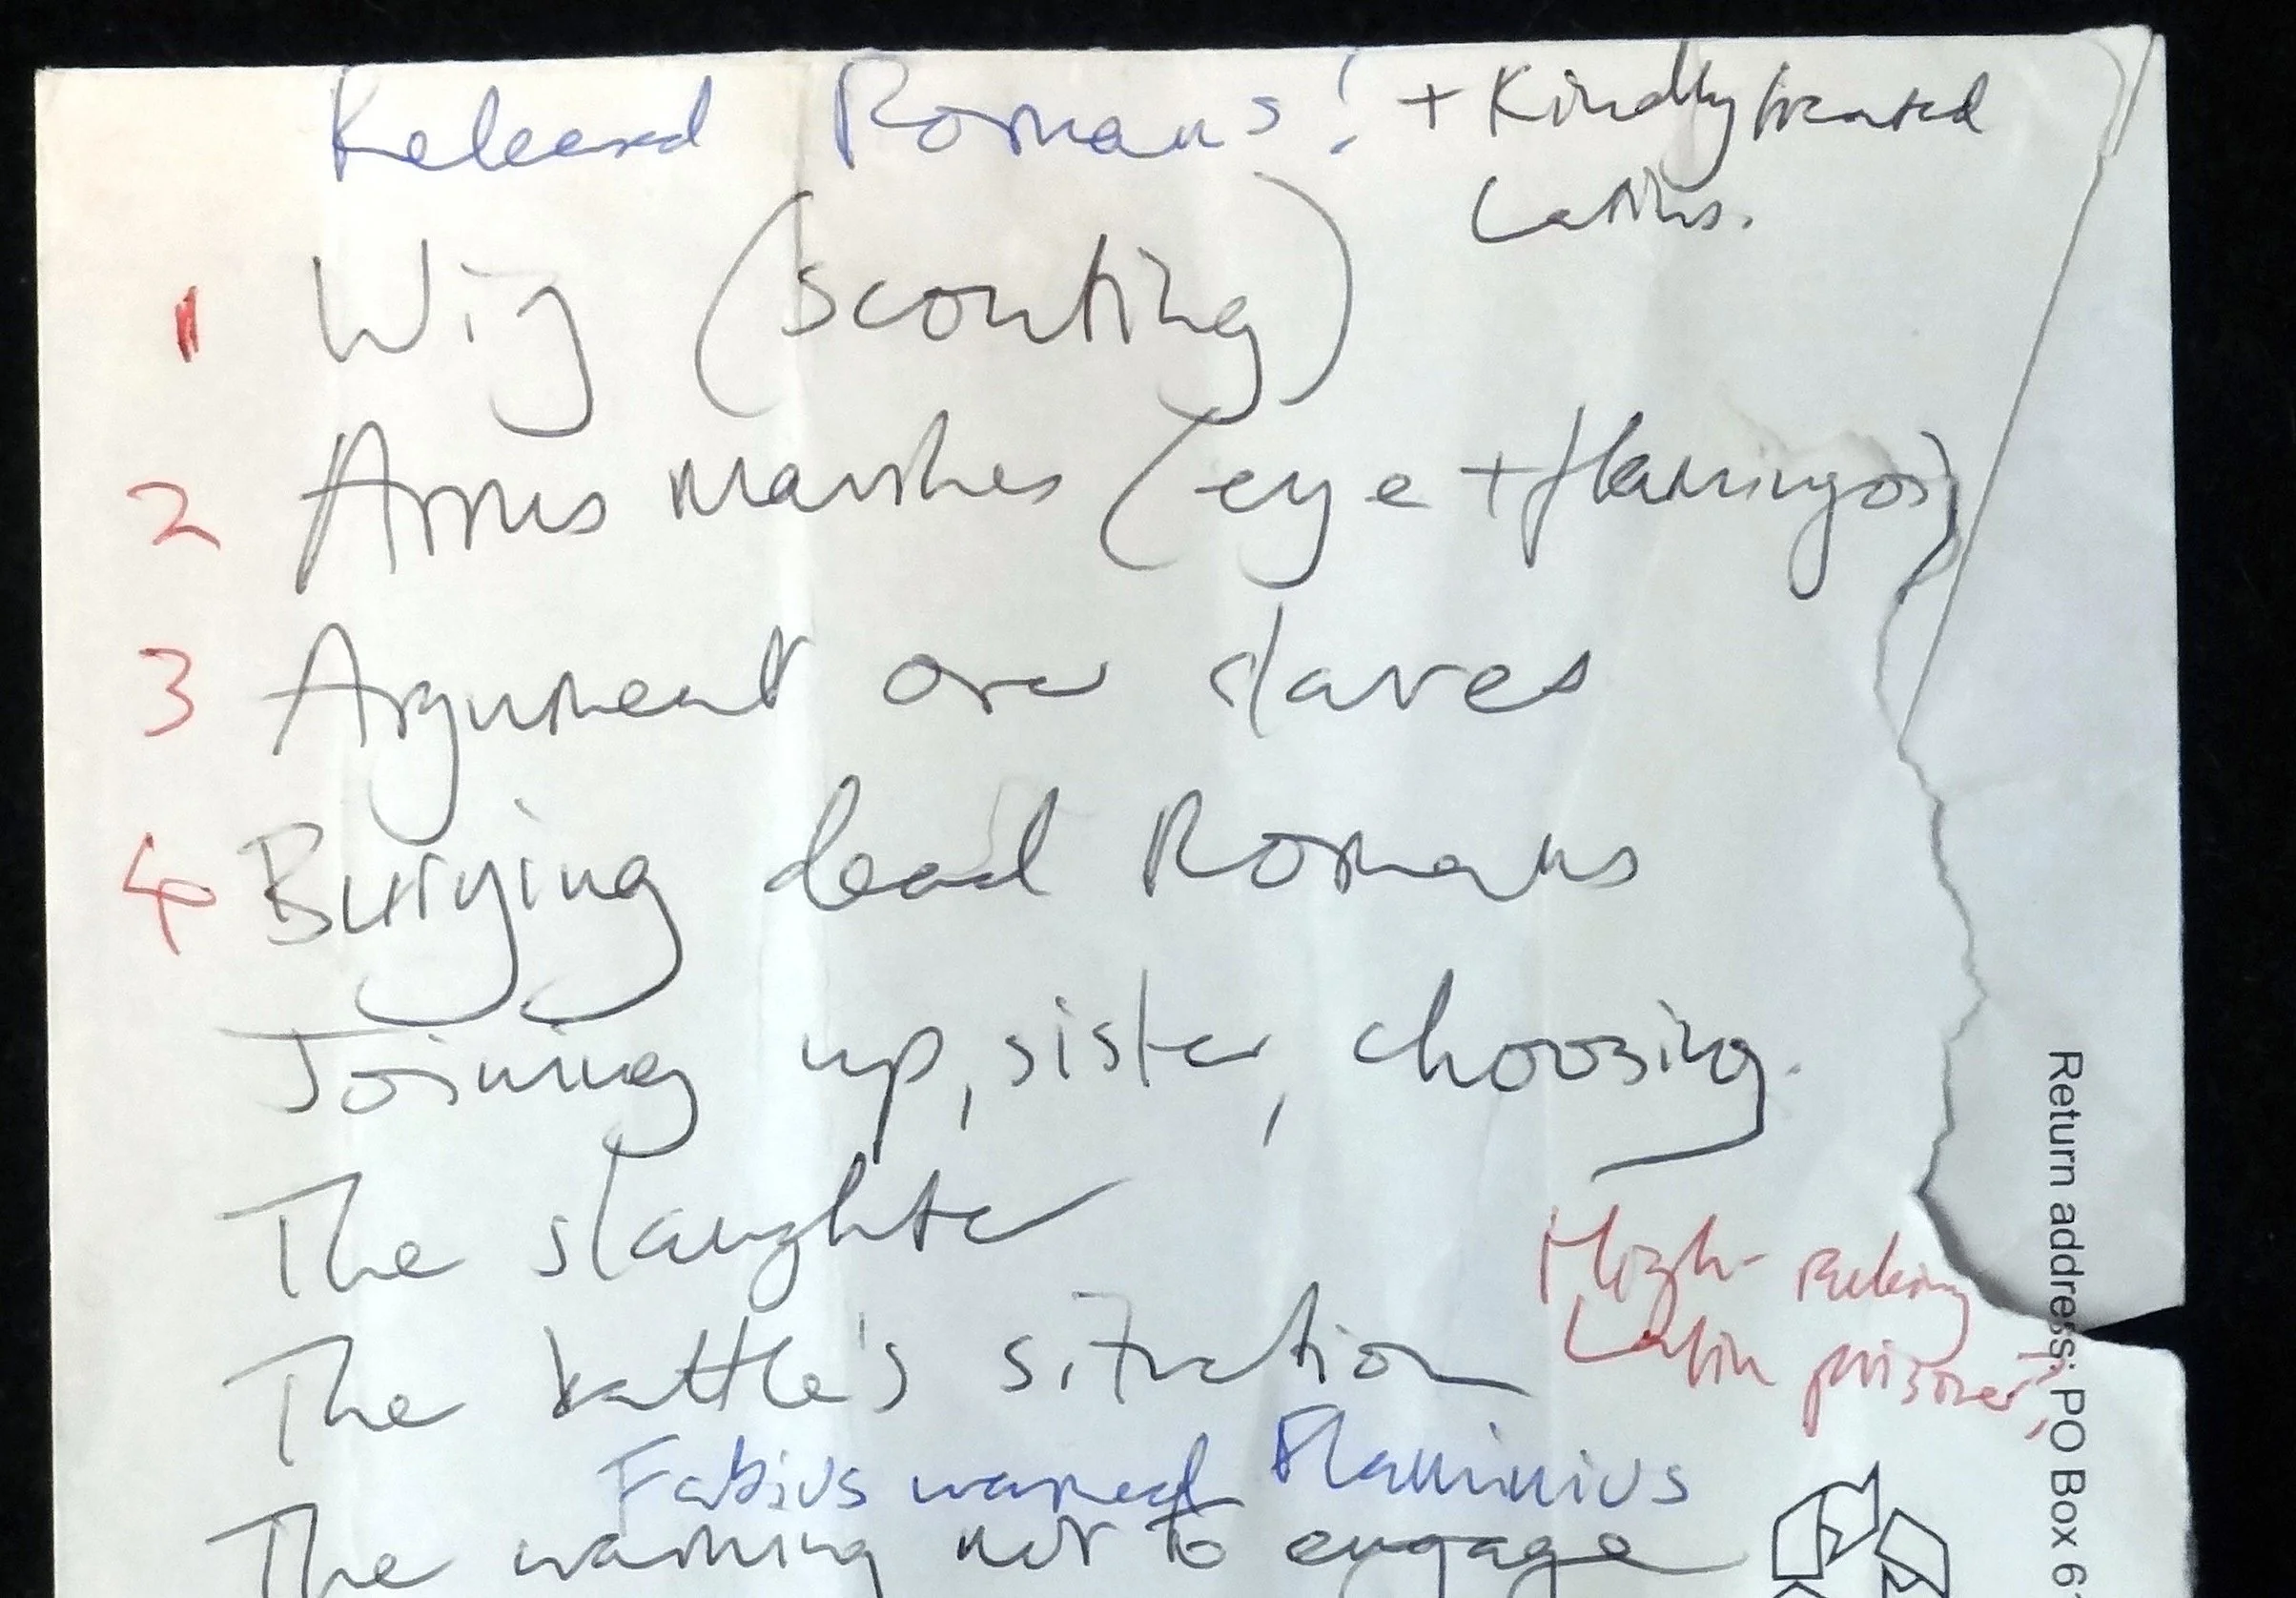 Released Romans! + Kindly treated
Latins.
1 Wig (scouting)
2 Arnus marshes (eye + flamingos)
3 Argument over slaves
4 Burying dead Romans
Joining up, sister, choosing.
The slaughter
High-ranking
Latin prisoner?
The battle's situation
Fabius warned Flaminius
The warning not to engage
Return address: PO Box 61